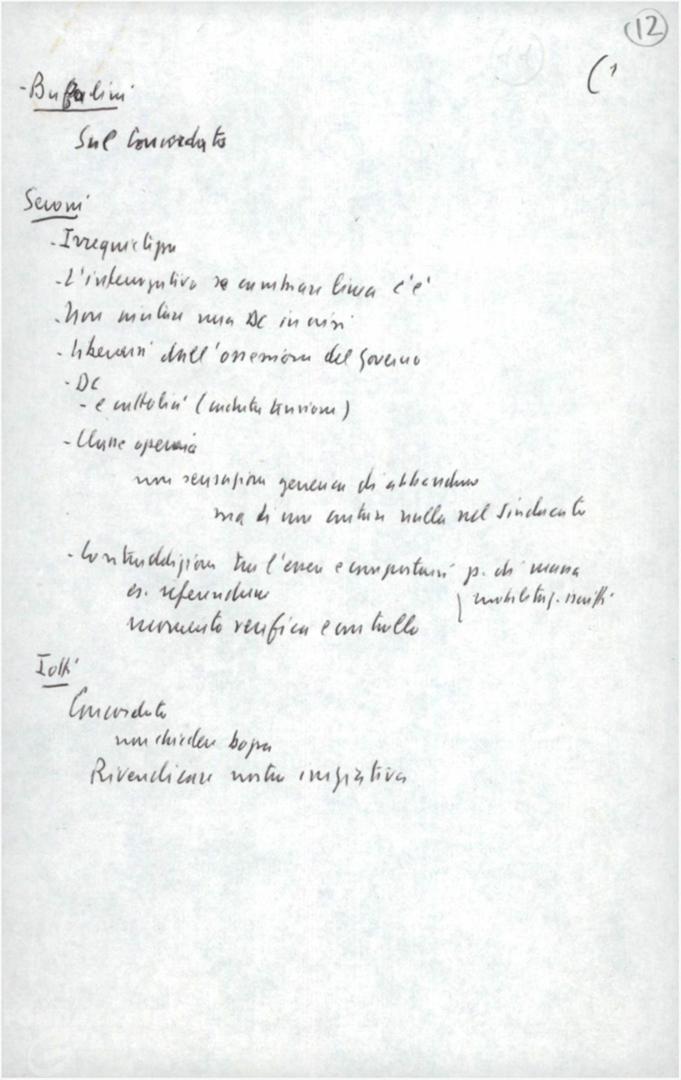 12
- Bufalini
Sul Concordato
Seroni
- Irrequietezza
- L'interrogativo se cambiare linea c'è
- Non aiutare una DC in crisi
- liberarsi dall'ossessione del governo
- DC
- e cattolici ( tensione )
- Classe operaia
non sensazione generica di abbandono
ma di non contare nulla nel Sindacato
- Contraddizione tra l'essere e comportarsi p. di massa
es. referendum
mobilitaz. iscritti
momento verifica e controllo
Iotti
Concordato
non chiedere
Rivendicare nostra iniziativa